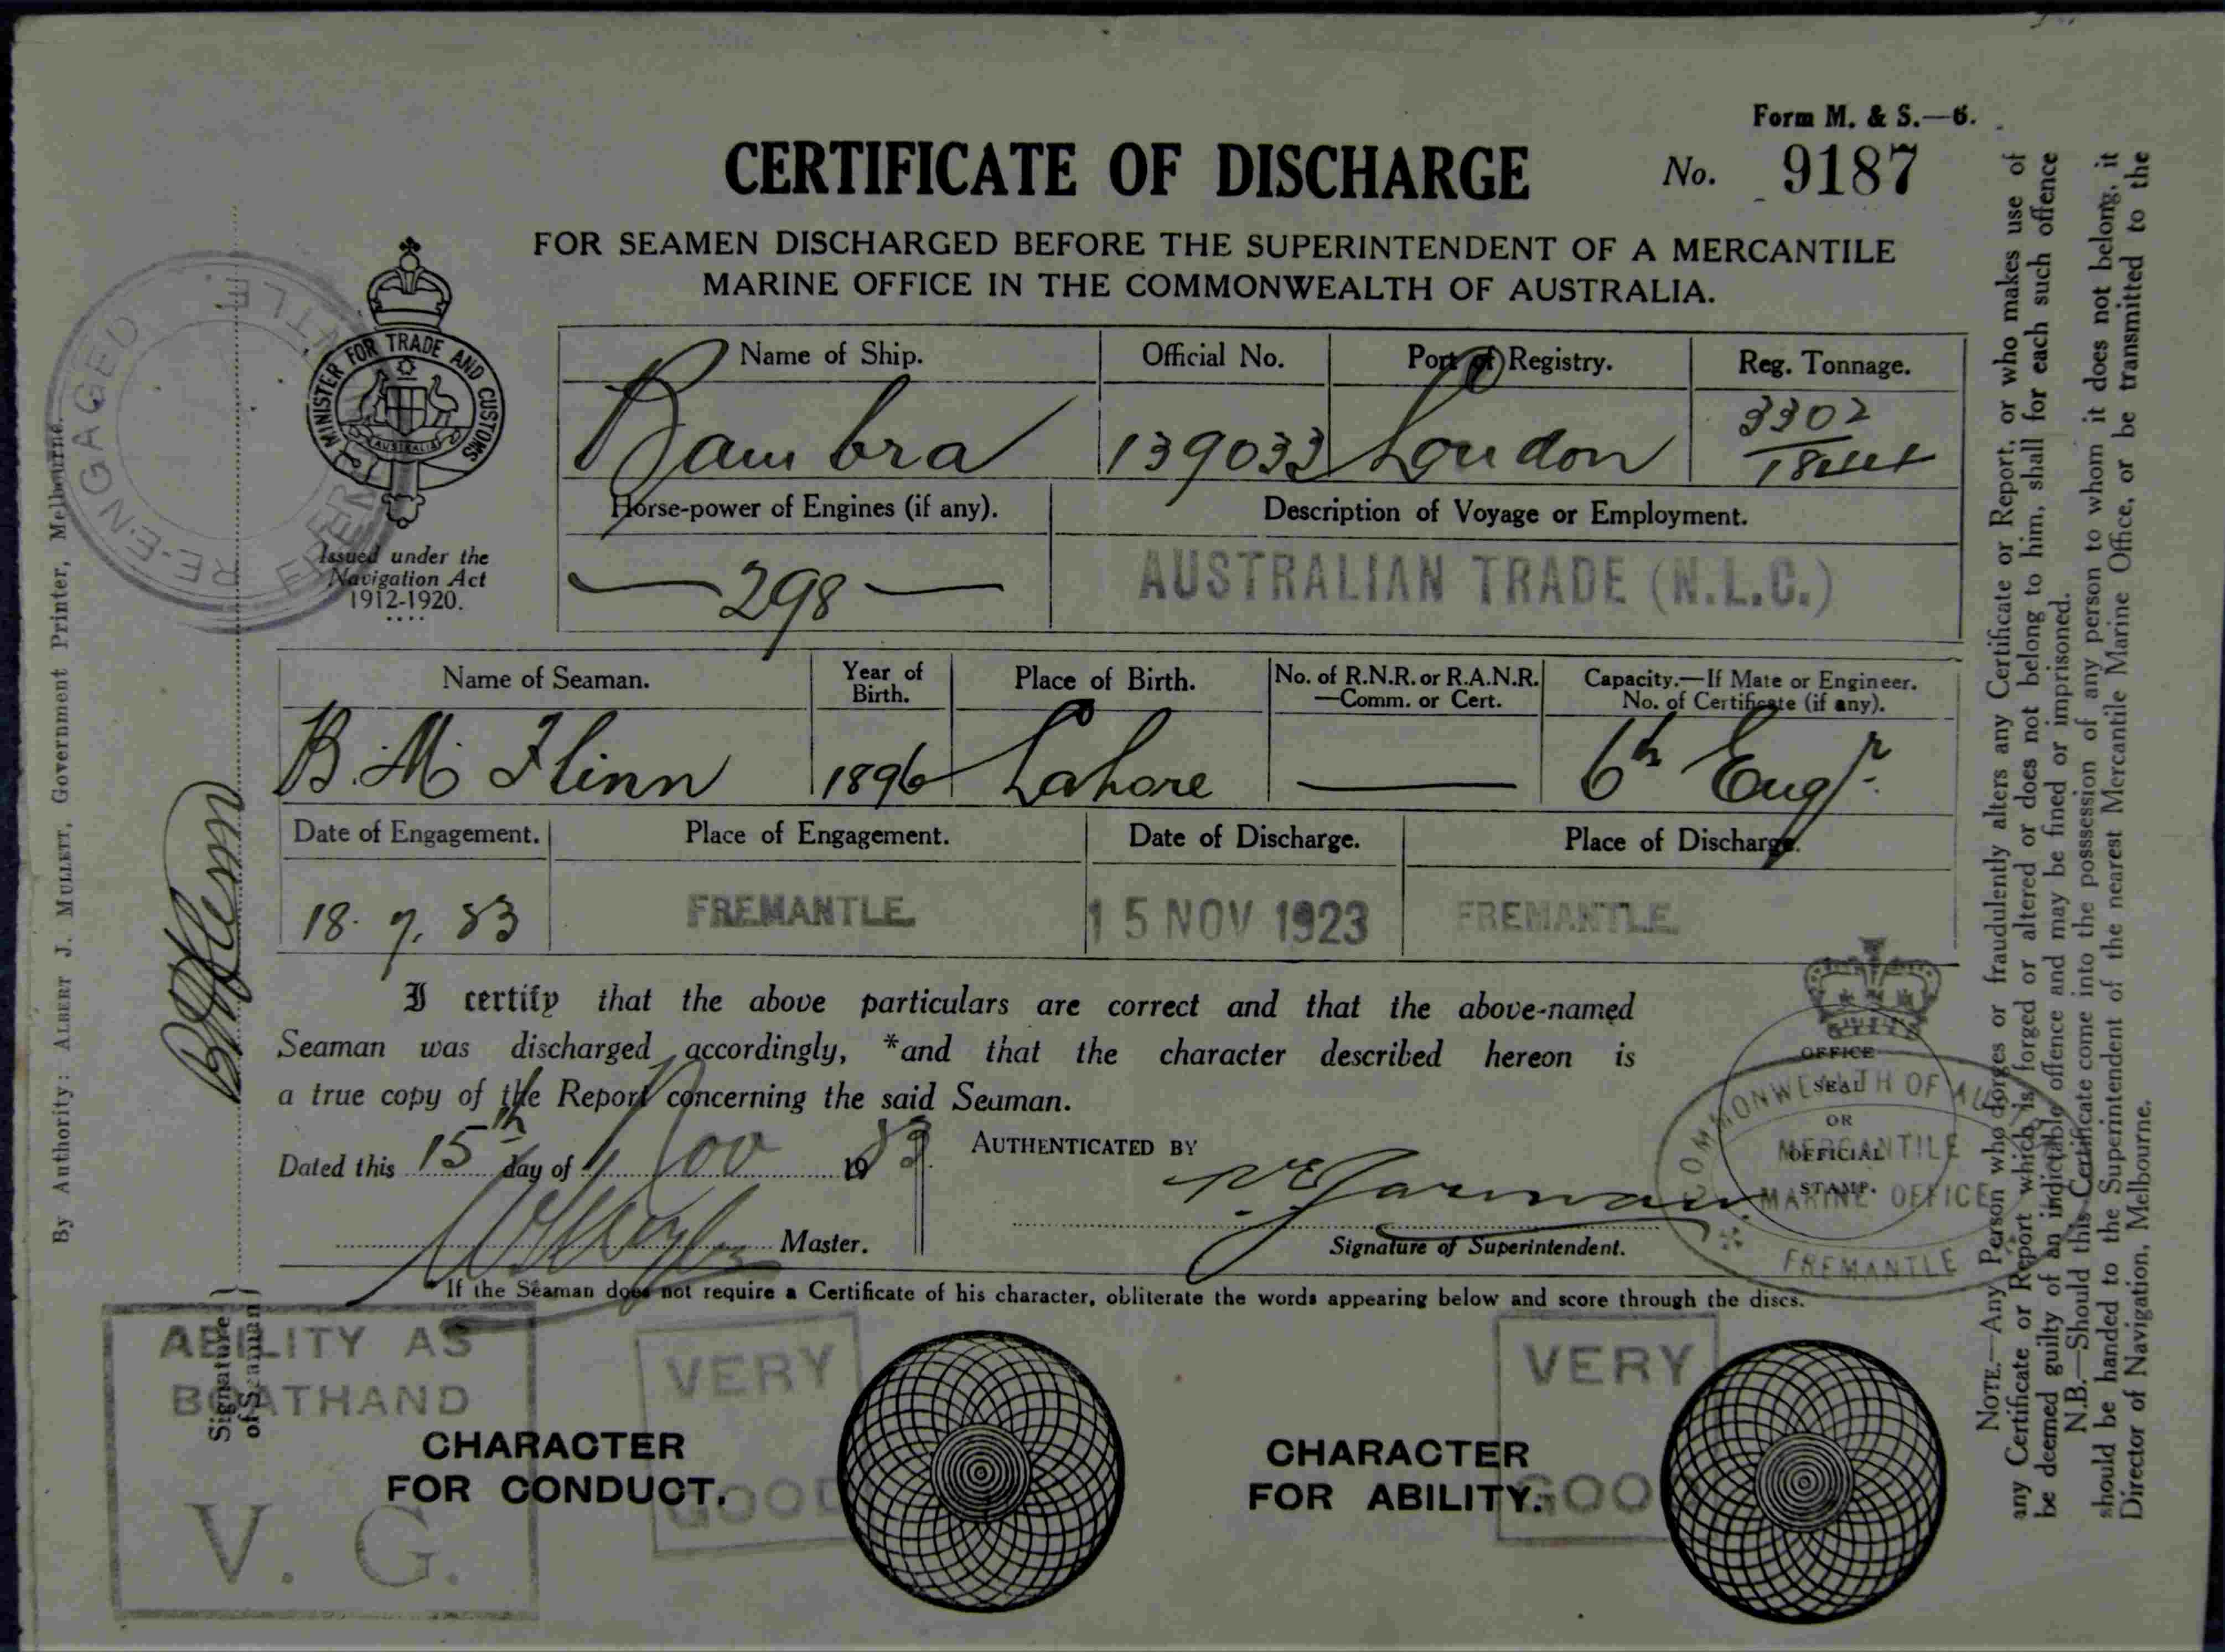 Form M. & S.—6.
CERTIFICATE OF DISCHARGE
No. 9187
FOR SEAMEN DISCHARGED BEFORE THE SUPERINTENDENT OF A MERCANTILE
MARINE OFFICE IN THE COMMONWEALTH OF AUSTRALIA.
RE-ENGAGED
MINISTER FOR TRADE AND CUSTOMS
AUSTRALIA
Issued under the
Navigation Act
1912-1920.
Name of Ship. Official No. Port of Registry. Reg. Tonnage.
Bambra 139033 London 3302
Horse-power of Engines (if any). Description of Voyage or Employment.
298 AUSTRALIAN TRADE (N.L.C.)
Name of Seaman. Year of Birth. Place of Birth. No. of R.N.R. or R.A.N.R.—Comm. or Cert. Capacity.—If Mate or Engineer. No. of Certificate (if any).
B. M. Flinn 1896 Lahore — 6th Engr.
Date of Engagement. Place of Engagement. Date of Discharge. Place of Discharge.
18. 7. 23 FREMANTLE 15 NOV 1923 FREMANTLE
I certify that the above particulars are correct and that the above-named
Seaman was discharged accordingly, *and that the character described hereon is
a true copy of the Report concerning the said Seaman.
Dated this 15th day of Nov 1923.
AUTHENTICATED BY
Master.
Signature of Superintendent.
OFFICE
SEAL
OR
OFFICIAL
STAMP.
COMMONWEALTH OF AU
MERCANTILE
MARINE OFFICE
FREMANTLE
* If the Seaman does not require a Certificate of his character, obliterate the words appearing below and score through the discs.
ABILITY AS
BOATHAND
V. G.
VERY
GOOD
CHARACTER
FOR CONDUCT.
VERY
GOO
CHARACTER
FOR ABILITY.
Signature
of Seaman
By Authority: ALBERT J. MULLETT, Government Printer, Melbourne.
NOTE.—Any Person who forges or fraudulently alters any Certificate or Report, or who makes use of
any Certificate or Report which is forged or altered or does not belong to him, shall for each such offence
be deemed guilty of an indictable offence and may be fined or imprisoned.
N.B.—Should this Certificate come into the possession of any person to whom it does not belong, it
should be handed to the Superintendent of the nearest Mercantile Marine Office, or be transmitted to the
Director of Navigation, Melbourne.